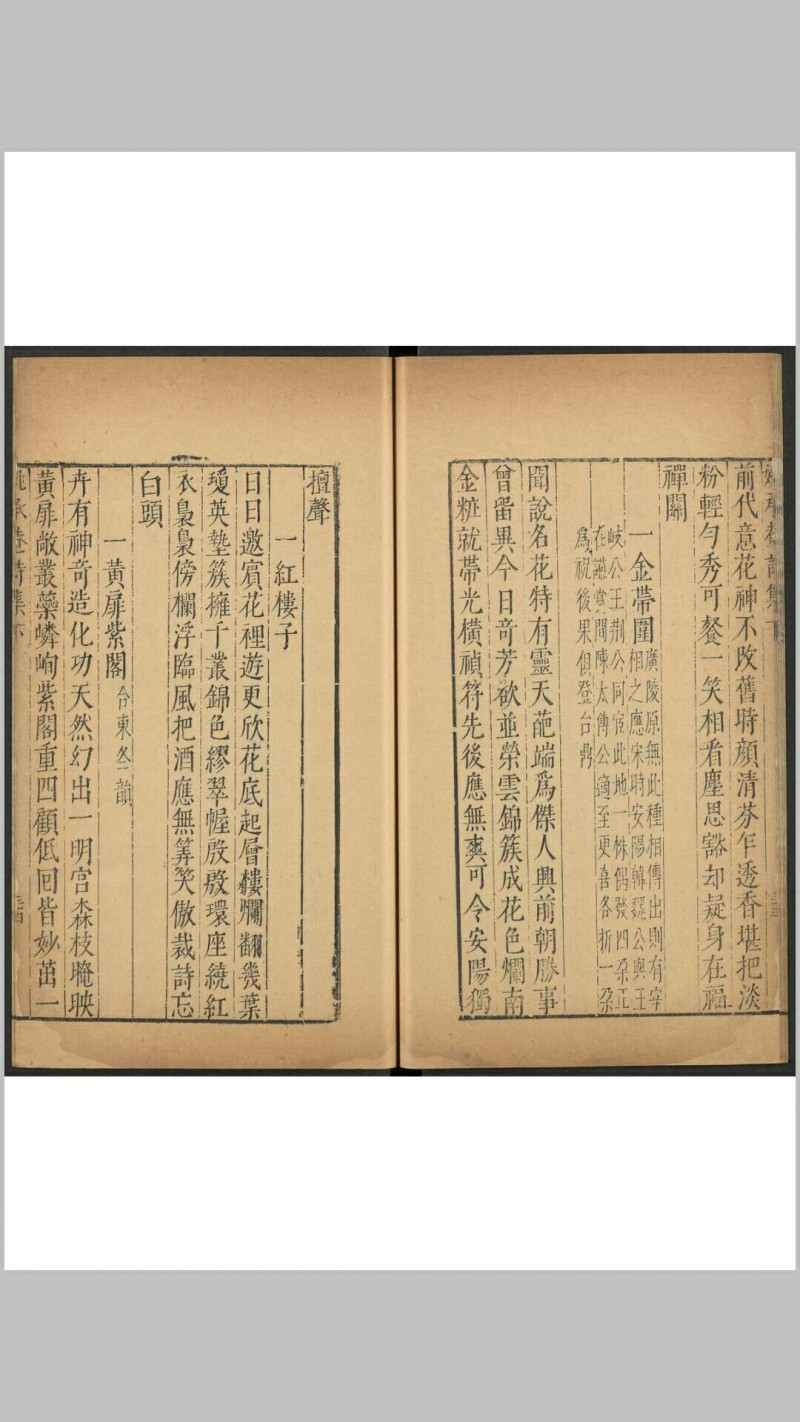 前代意花神不改舊時顔清芬乍透香堪把淡
粉輕勻秀可餐一笑相看塵思豁却疑身在福
禪關
一金帶圍
廣陵原無此種相傳出則有宰
相之應宋時安陽韓魏公與王
岐公王荆公同官此地一株偶發四朶正
在讌賞間陳太傅公適至更喜各折一朶
爲祝後果俱登台鼎
聞說名花特有靈天葩端爲傑人興前朝勝事
曾畱異今日奇芳欲並榮雲錦簇成花色爛南
金粧就帶光橫禎符先後應無爽可令安陽獨
擅聲
一紅樓子
日日邀賓花裡遊更欣花底起層樓爛翻幾葉
瓊英墊簇擁千叢錦色繆翠幄殷殷環座繞紅
衣裊裊傍欄浮臨風把酒應無筭笑傲裁詩忘
白頭
一黄扉紫閣
合東冬二韻
卉有神奇造化功天然幻出一明宫森枝掩映
黄扉敞叢藥嶙峋紫閣重四顧低回皆妙茁一
承菴詩集下